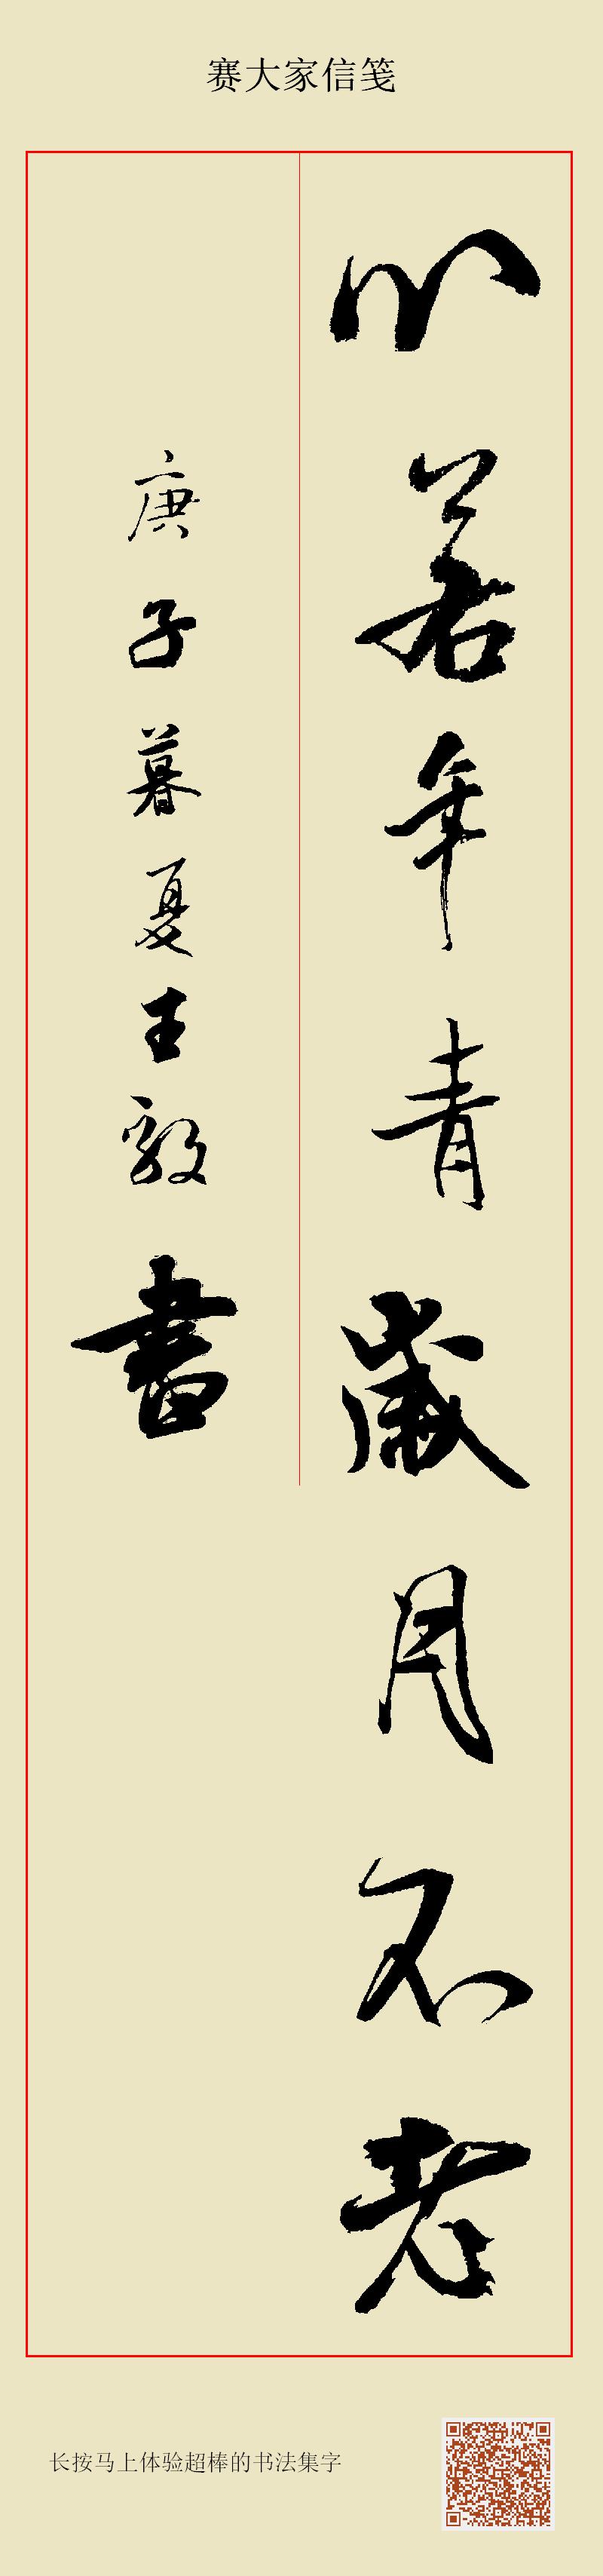 赛大家信笺
心若年青歲月不老
庚子暮夏王毅書
长按马上体验超棒的书法集字